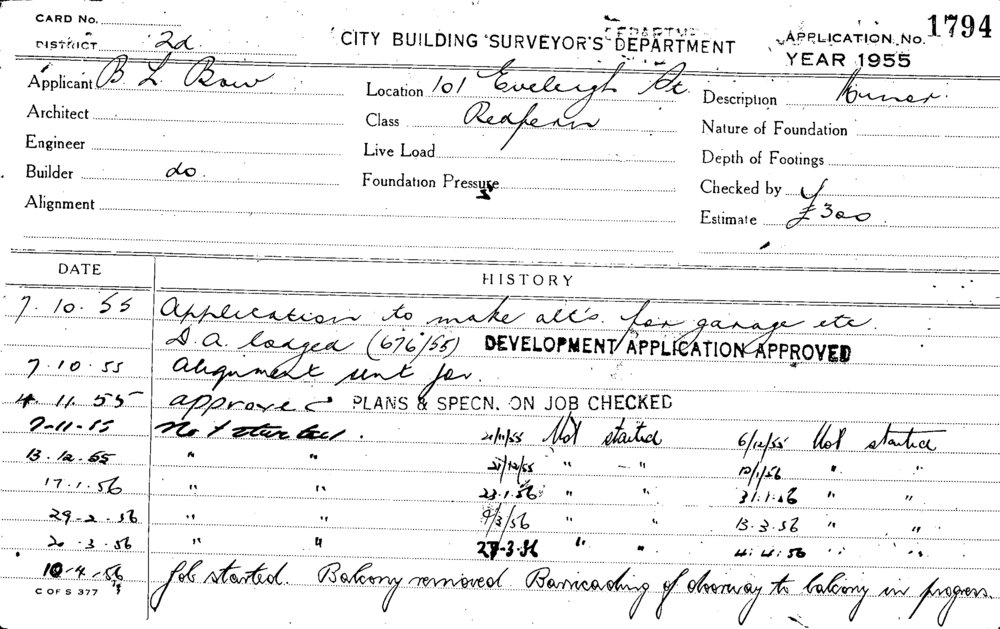 CARD No.
DISTRICT 2d.
CITY BUILDING SURVEYOR'S DEPARTMENT
APPLICATION No. 1794
YEAR 1955
Applicant B L Bow
Location 101 Eveleigh St.
Description Minor.
Architect
Class Redfern
Nature of Foundation
Engineer
Live Load
Depth of Footings
Builder do.
Foundation Pressure
Checked by
Alignment
Estimate £300
DATE HISTORY
7.10.55 Application to make alt's. for garage etc.
D.A. lodged (676/55) DEVELOPMENT APPLICATION APPROVED
7.10.55 Alignment sent for.
4.11.55 approved PLANS & SPECN. ON JOB CHECKED
7-11-55 Not started. 21/11/55 Not started 6/12/55 Not started
13.12.55 " " 21/12/55 " " 12/1/56 " "
17.1.56 " " 23.1.56 " " 31.1.56 " "
29-2-56 " " 9/3/56 " " 13.3.56 " "
20.3.56 " " 27-3-56 " " 4.4.56 " "
10-4-56 Job started. Balcony removed. Barricading of doorway to balcony in progress.
C OF S 377